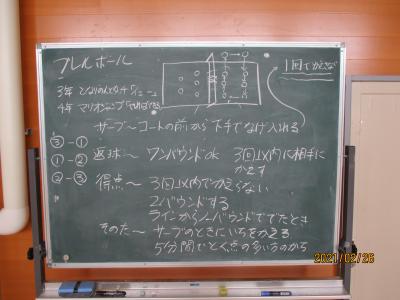 フレルボール
1回でかえさない
3年
4年 マリオジャンプ
サーブ〜コートの前から下手でなげ入れる
③-①
①-② 返球〜 ワンバウンドok 3回以内に相手に
かえす
②-③ 得点〜 3回以内でかえらない
2バウンドする
ラインからノーバウンドででたとき
そのた〜 サーブのときにいちをかえる
5分間でとく点の多い方のかち
2021/02/26